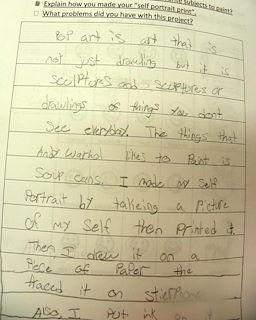 subjects to paint?
Explain how you made your "self portrait print".
What problems did you have with this project?
Pop art is art that is
not just drawling but it is
sculptures and sculptures or
drawlings of things you dont
see everyday. The things that
Andy Warhol likes to paint is
Soup cans. I made my self
Portrait by takeing a Picture
of my self then Printed it.
Then I drew it on a
Piece of Paper the
traced it on
Also, I Put ink on it